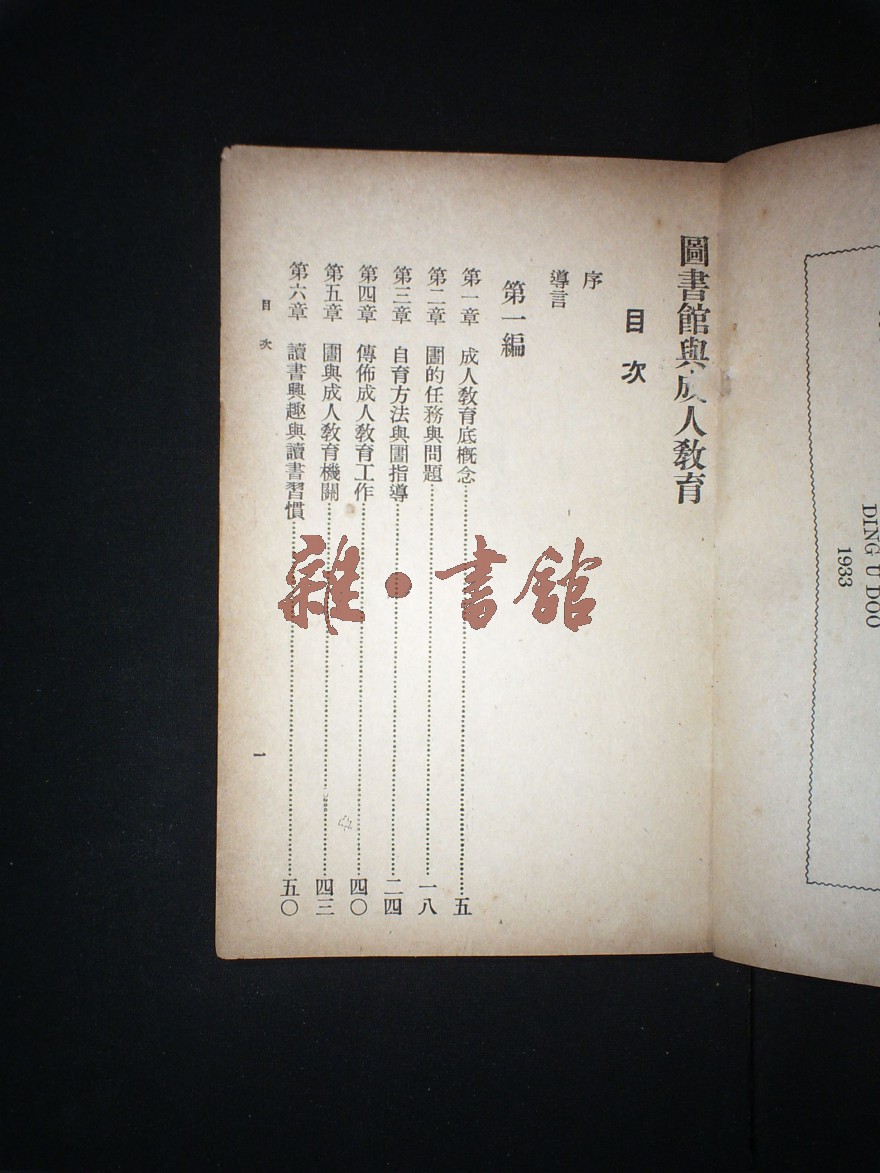 圖書館與成人教育
目次
序
導言
第一編
第一章 成人教育底概念 五
第二章 圕的任務與問題 一八
第三章 自育方法與圕指導 二四
第四章 傳佈成人教育工作 四〇
第五章 圕與成人教育機關 四三
第六章 讀書興趣與讀書習慣 五〇
目次
一
DING U DOO
1933
雜·書館